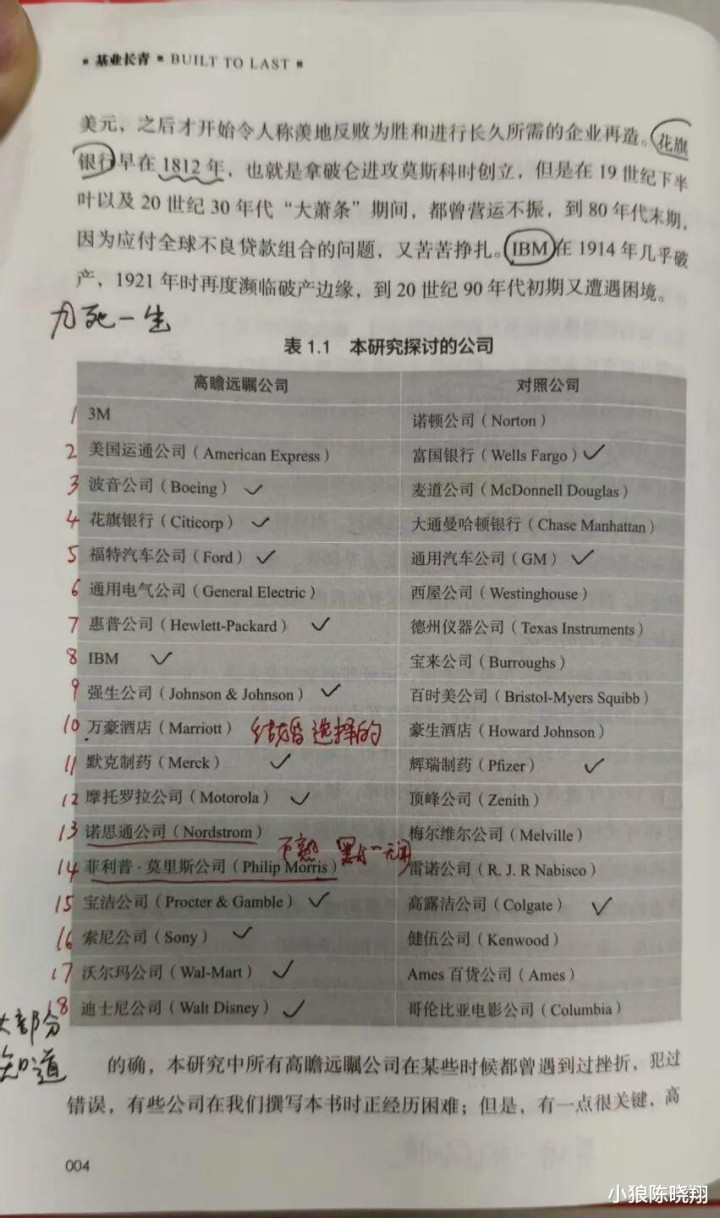 ▪ 基业长青 ▪ BUILT TO LAST ▪
美元，之后才开始令人称羡地反败为胜和进行长久所需的企业再造。花旗
银行早在 1812 年，也就是拿破仑进攻莫斯科时创立，但是在 19 世纪下半
叶以及 20 世纪 30 年代“大萧条”期间，都曾营运不振，到 80 年代末期，
因为应付全球不良贷款组合的问题，又苦苦挣扎。IBM 在 1914 年几乎破
产，1921 年时再度濒临破产边缘，到 20 世纪 90 年代初期又遭遇困境。
九死一生
表 1.1 本研究探讨的公司
高瞻远瞩公司 对照公司
1 3M 诺顿公司（Norton）
2 美国运通公司（American Express） 富国银行（Wells Fargo）✓
3 波音公司（Boeing）✓ 麦道公司（McDonnell Douglas）
4 花旗银行（Citicorp）✓ 大通曼哈顿银行（Chase Manhattan）
5 福特汽车公司（Ford）✓ 通用汽车公司（GM）✓
6 通用电气公司（General Electric） 西屋公司（Westinghouse）
7 惠普公司（Hewlett-Packard）✓ 德州仪器公司（Texas Instruments）
8 IBM ✓ 宝来公司（Burroughs）
9 强生公司（Johnson & Johnson）✓ 百时美公司（Bristol-Myers Squibb）
10 万豪酒店（Marriott） 结婚选择的 豪生酒店（Howard Johnson）
11 默克制药（Merck）✓ 辉瑞制药（Pfizer）✓
12 摩托罗拉公司（Motorola）✓ 顶峰公司（Zenith）
13 诺思通公司（Nordstrom） 梅尔维尔公司（Melville）
不熟
14 菲利普·莫里斯公司（Philip Morris） 雷诺公司（R. J. R Nabisco）
15 宝洁公司（Procter & Gamble）✓ 高露洁公司（Colgate）✓
16 索尼公司（Sony）✓ 健伍公司（Kenwood）
17 沃尔玛公司（Wal-Mart）✓ Ames 百货公司（Ames）
18 迪士尼公司（Walt Disney）✓ 哥伦比亚电影公司（Columbia）
大部分
知道
的确，本研究中所有高瞻远瞩公司在某些时候都曾遇到过挫折，犯过
错误，有些公司在我们撰写本书时正经历困难；但是，有一点很关键，高
004
小狼陈晓翔